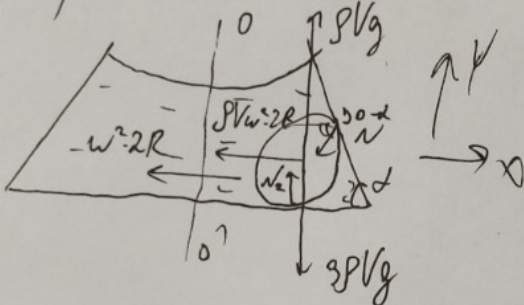 O
ρVg
y
ρVω²·2R
90-α
N
-ω²·2R
x
N₂
α
O'
9ρVg